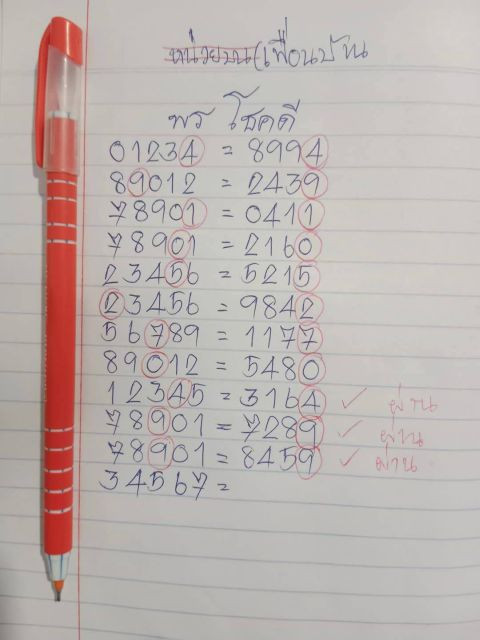 หน่วยบน(เพื่อนบ้าน
พร โชคดี
01234 = 8994
89012 = 2439
78901 = 0411
78901 = 2160
23456 = 5215
23456 = 9842
56789 = 1177
89012 = 5480
12345 = 3164 ✓ ผ่าน
78901 = 7289 ✓ ผ่าน
78901 = 8459 ✓ ผ่าน
34567 =